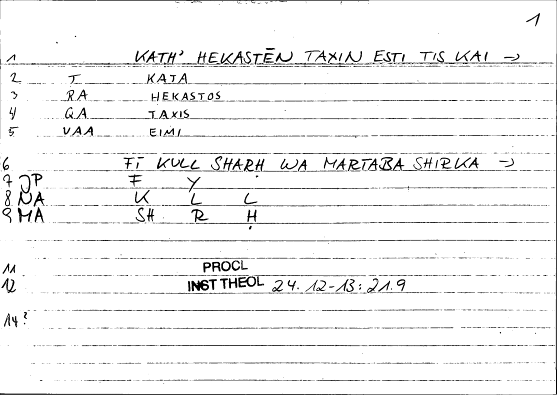 1
1 KATH' HEKASTĒN TAXIN ESTI TIS KAI →
2 T KATA
3 RA HEKASTOS
4 QA TAXIS
5 VAA EIMI
6 FĪ KULL SHARḤ WA MARTABA SHIRKA →
7 JP F Y .
8 NA K L L
9 MA SH R Ḥ
11 PROCL
12 INST THEOL 24.12-13: 21.9
14?